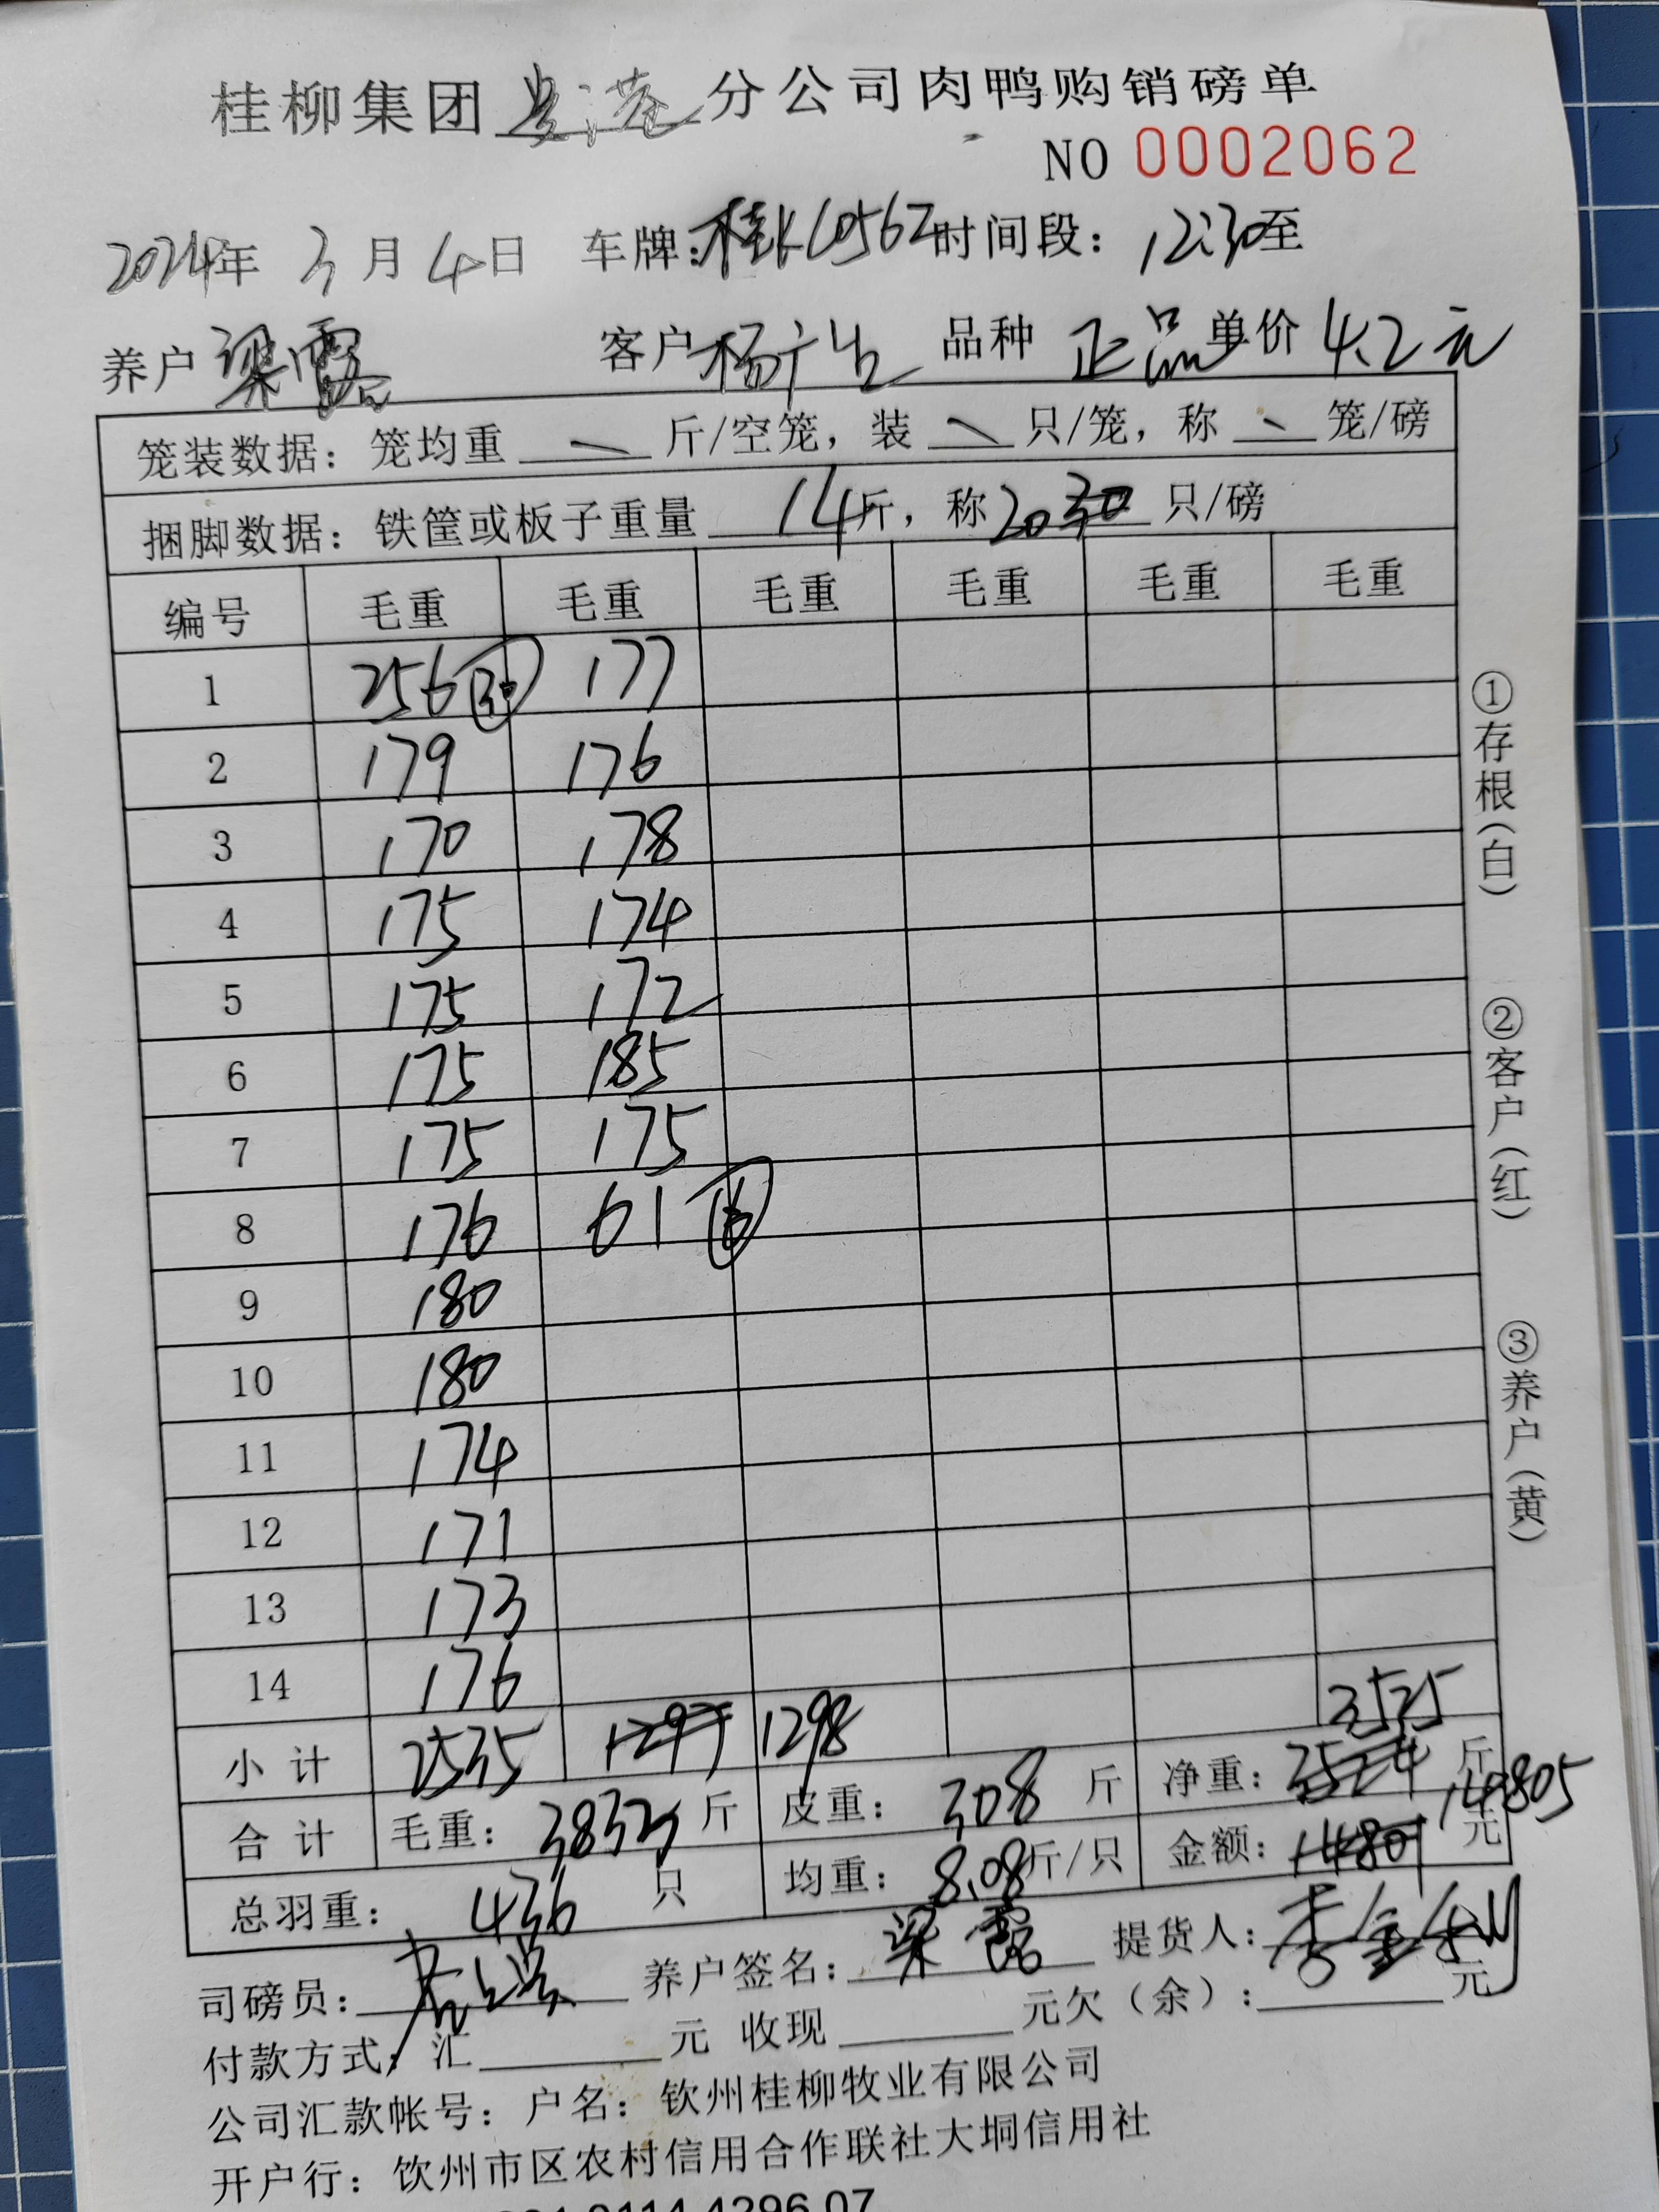 桂柳集团贵港分公司肉鸭购销磅单
NO 0002062
2024年 3月 4日 车牌:桂K60562时间段: 12:30至
养户梁露 客户杨广生 品种 正品单价 4.2元
笼装数据: 笼均重 斤/空笼, 装 只/笼, 称 笼/磅
捆脚数据: 铁筐或板子重量 14斤, 称20 30 只/磅
编号 毛重 毛重 毛重 毛重 毛重 毛重
1 256 30 177
2 179 176
3 170 178
4 175 174
5 175 172
6 175 185
7 175 175
8 176 61 6
9 180
10 180
11 174
12 171
13 173
14 176
3525
小计 2535 1297 1298
合计 毛重: 3833斤 皮重: 308 斤 净重: 3524 斤
14805
总羽重: 436 只 均重: 8.08斤/只 金额: 14801 元
司磅员: 养户签名: 梁露 提货人: 李金利
付款方式: 汇 元 收现 元欠(余): 元
公司汇款帐号: 户名: 钦州桂柳牧业有限公司
开户行: 钦州市区农村信用合作联社大垌信用社
①存根(白)
②客户(红)
③养户(黄)